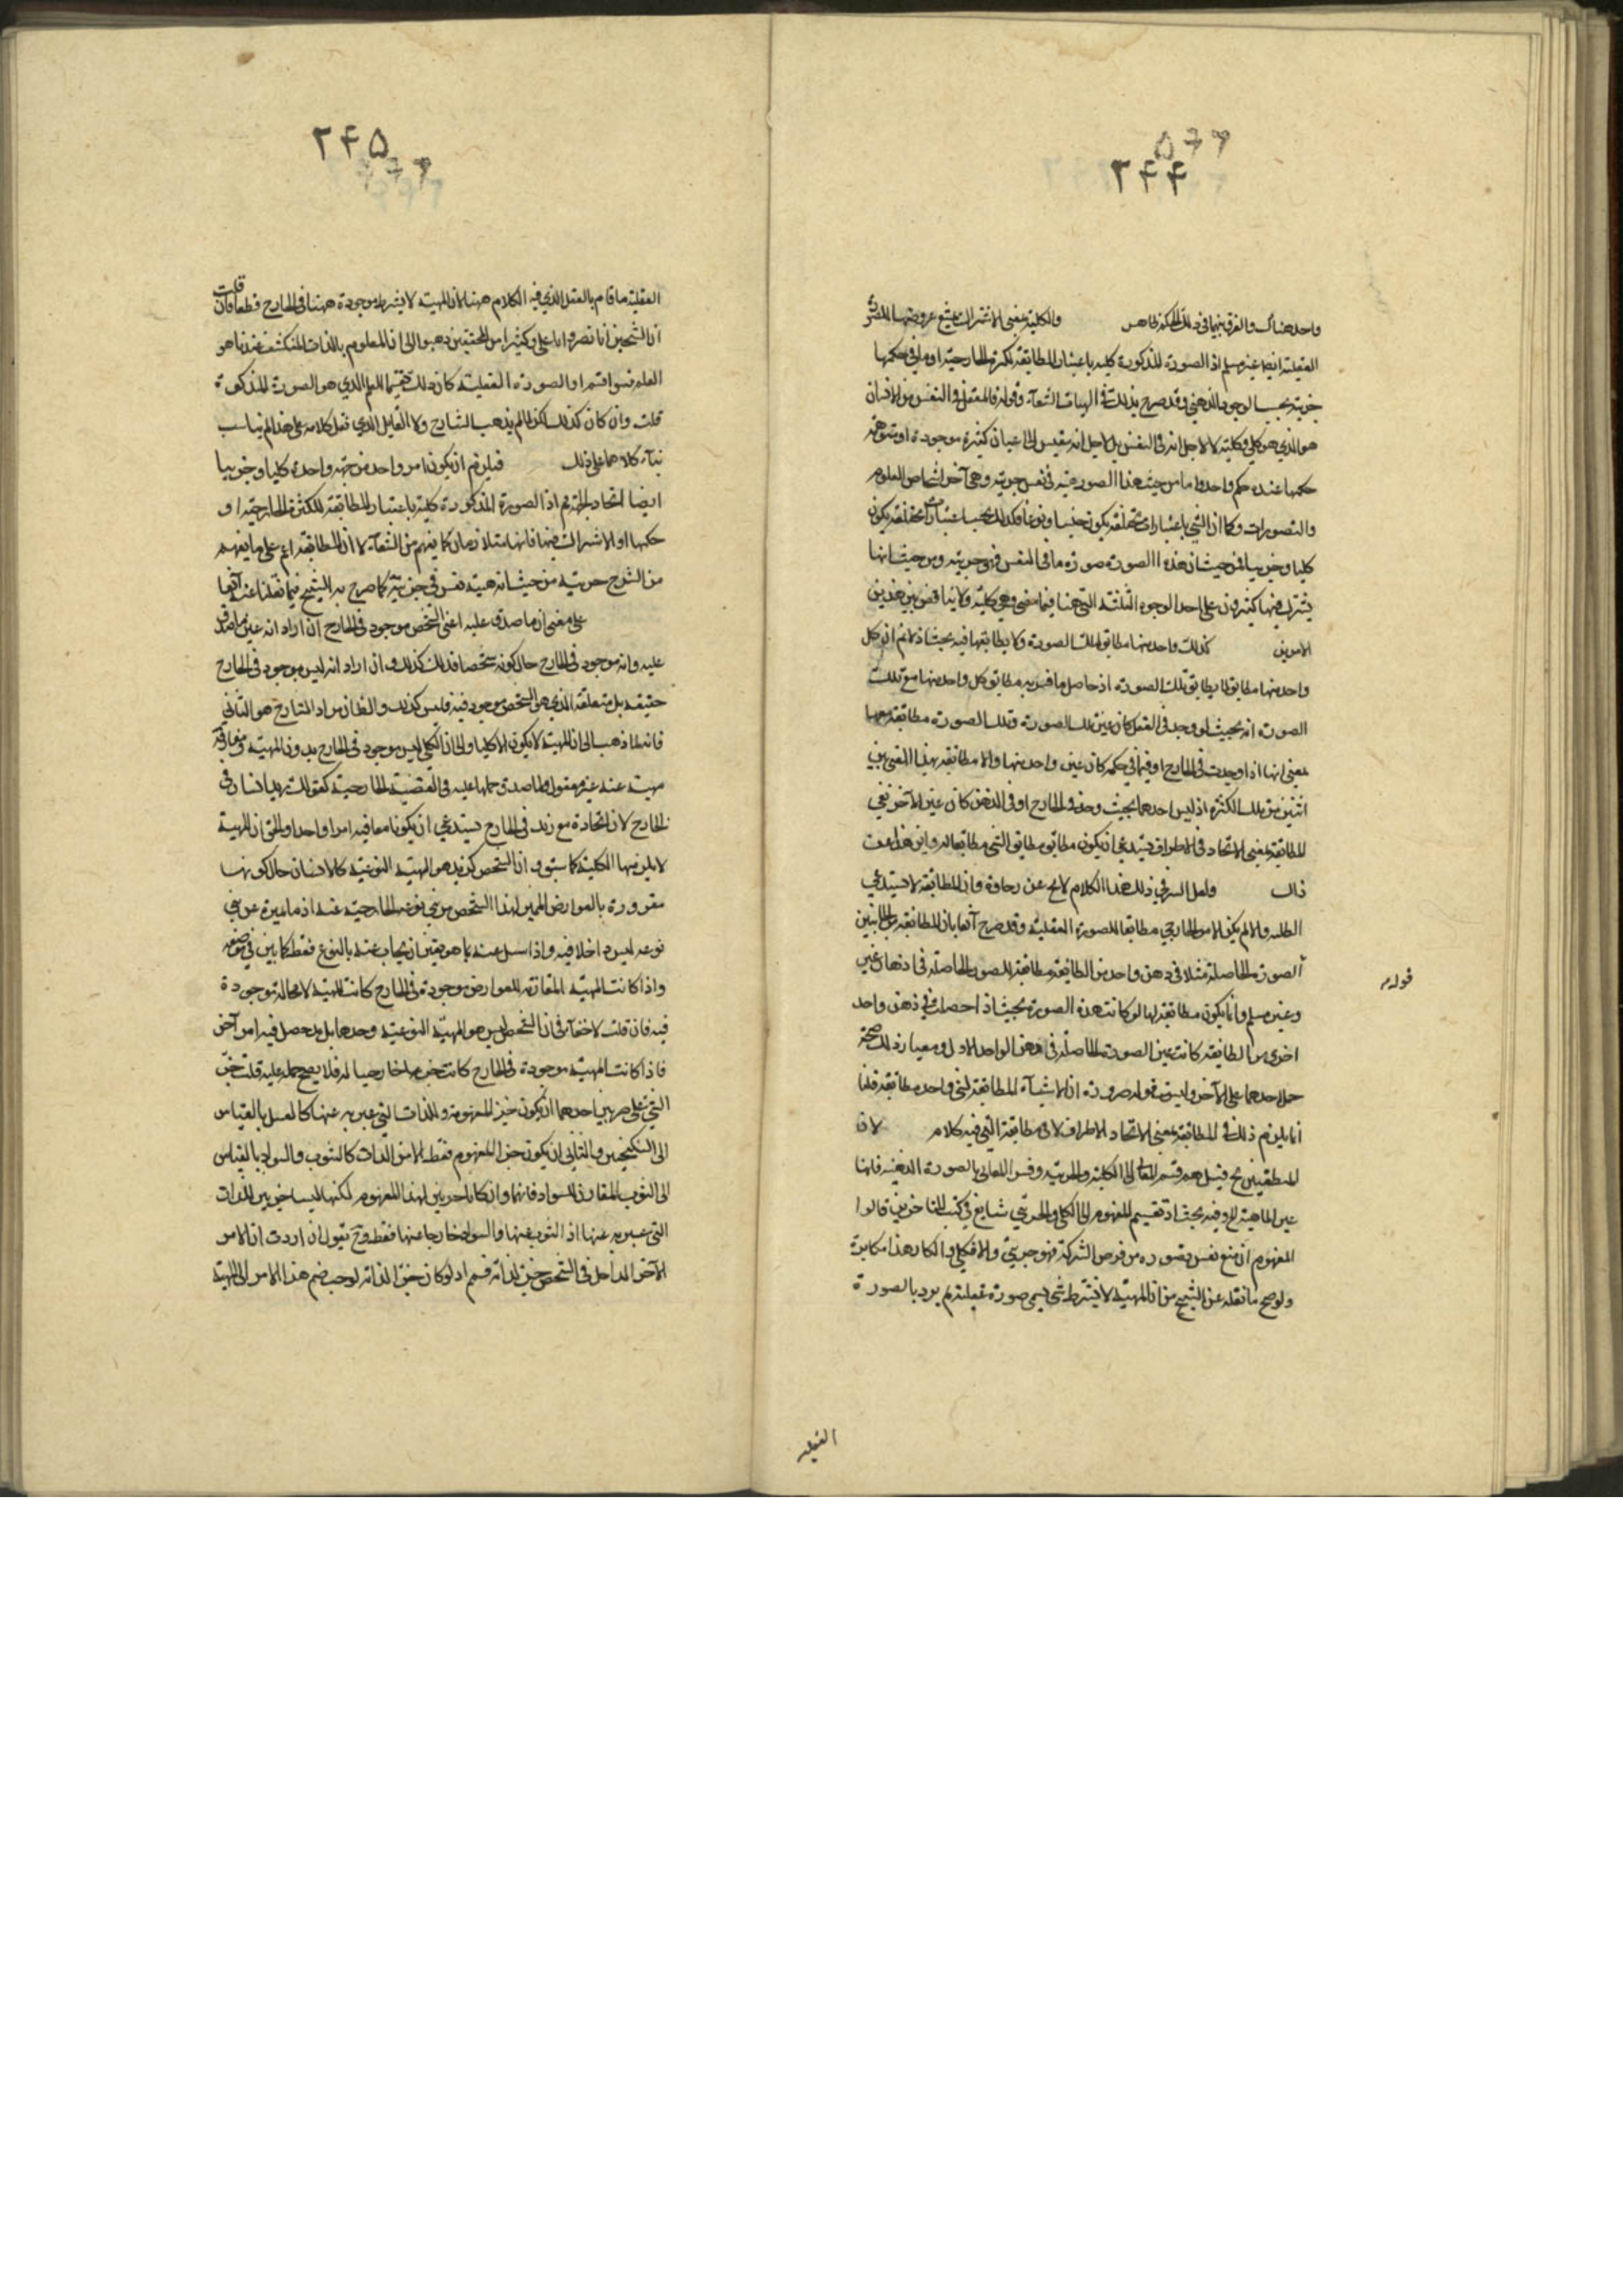 ۵۶۶
۲۴۴
واحد هناك والفرق بينهما في ذلك الحكم ظاهر والكلية بمعنى الاشتراك يمتنع عروضها للصورة
العقلية ايضا غير مسلم اذ الصورة المذكورة كلية باعتبار المطابقة لكثرة الخارجية او ما في حكمها
جزئية بحسب الوجود الذهني وقد صرح بذلك في الهيات الشفآء وقوله فالمعقل في النفس من الانسان
هو الذي هو كلي وكليته لا لاجل انه في النفس بل لاجل انه مقيس الى اعيان كثيرة موجودة او متوهمة
حكمها عنده حكم واحد واما من حيث هذا الصورة هيئة في نفس جزئية وهي احد اشخاص العلوم
والتصورات وكما ان الشي باعتبارات مختلفة يكون جنسا ونوعا فكذلك بحسب اعتبارات مختلفة يكون
كليا وجزئيا فمن حيث ان هذه الصورة صورة ما في النفس فهو جزئية ومن حيث انها
يشترك فيها كثيرون على احد الوجوه الثلثة التي بينا فيما مضى وهي كلية ولا يناقض بين هذين
الامرين كذلك واحد منها مطابق لتلك الصورة ولا يطابقها فيه بحث اذ لا نم ان كل
واحد منها مطابق لما يطابق تلك الصورة اذ حاصل ما فسر به مطابق كل واحد منها مع تلك
الصورة انه بحيث لو وجد في العقل كان عين تلك الصورة وتلك الصورة مطابقة معها
بمعنى انها اذا وجدت في الخارج او فيما في حكمه كان عين واحد منها والا مطابقة بهذا المعنى بين
اثنين من تلك الكثرة اذ ليس احدهما بحيث وجد في الخارج او في الذهن كان عين الآخر نعم
المطابقة بمعنى الاتحاد في الاطراف يستدعي ان يكون مطابق مطابق الشي مطابقا له واين هذا من
ذاك ولعل السر في ذلك هذا الكلام لا يخ عن رخاوة فان المطابقة لا تستدعي
الظلية والا لم يكن الامر الخارجي مطابقا للصورة العقلية وقد صرح آنفا بان المطابقة من الجانبين
قوله
الصورة الحاصلة مثلا في ذهن واحد من الطائفة مطابقة للصور الحاصلة في اذهان غيره
وغير مسلم وانما يكون مطابقة لها لو كانت هذه الصورة بحيث اذا حصلت في ذهن واحد
اخرى من الطائفة كانت عين الصورة الحاصلة في ذهن الواحد الاول ومعيار ذلك صحة
حمل احدهما على الآخر وليست قوله ضرورة ان الاشيآء المطابقة لشي واحد مطابقة قلنا
انما يلزم ذلك في المطابقة بمعنى الاتحاد الاطراف لا في مطابقة التي فيه كلام لان
المنطقيين الخ قيل هم قسم المعاني الى الكلية والجزئية وفسر المعاني بالصورة الذهنية فانها
عين الماهية الخ وفيه بحث اذ تقسيم المفهوم الى الكلي والجزئي شايع في كتب المتاخرين قالوا
المفهوم ان منع نفس تصوره من فرض الشركة فهو جزئي والا فكلي وانكار هذا مكابرة
ولو صح ما نقله عن الشيخ من ان المهية لا بشرط شي يسمى صورة عقلية لم يرد بالصورة
العقلية
۲۴۵
العقلية ما قام بالعقل الذي فيه الكلام ههنا لان المهية لا بشرط موجودة ههنا في الخارج قطعا فان قلت
ان الشيخين ابا نصر وابا علي وكثيرا من المحققين ذهبوا الى ان المعلوم بالذات المنكشف عندنا هو
العلم فسوا قسموا الصورة العقلية كان ذلك تقسيما للعلم الذي هو الصورة المذكورة
قلت وان كان كذلك لكن لما لم يذهب الشارح ولا القايل الذي نقل كلامه على هذا لم يناسب
بنآء كلامهما على ذلك فيلزم ان يكون امر واحد من جهة واحدة كليا وجزئيا
ايضا اتحاد الجهة نم اذ الصورة المذكورة كلية باعتبار المطابقة للكثرة الخارجية او
حكمها او الاشتراك فيها فانهما متلازمان كما يفهم من الشفآء لا ان المطابقة اعم على ما يفهم
من الشرح جزئية من حيث انه هيئة نفس في جزئية كما صرح به الشيخ فيما نقلنا عنه آنفا
على معنى ان ما صدق عليه اعني الشخص موجود في الخارج ان اراد انه عين ما صدق
عليه وانه موجود في الخارج حال كونه شخصا فذلك كذلك وان اراد انه ليس موجود في الخارج
حقيقة بل متعلقه الذي هو الشخص موجود فيه فليس كذلك والظ ان مراد الشارح هو الثاني
فانه لما ذهب الى ان المهية لا يكون الا كليا والى ان الكلي ليس موجود في الخارج يدون المهية
مهية عنده غير معقول فما صدق حملها عليه في القضية الخارجية كقولك زيد انسان في
الخارج لان اتحاده مع زيد في الخارج يستدعي ان يكونا معا فيه امرا واحدا والحق ان المهية
لا يلزمها الكلية كما سبق وان الشخص كزيد هو المهية النوعية كالانسان حال كونها
مقرونة بالعوارض المميز لهذا الشخص من بني نوعه الخارجية عنه اذ ما يميزه عن بني
نوعه ليس داخلا فيه واذا سئل عنه بما هو يتعين ان يجاب عنه بالنوع فقط كما بين في موضعه
واذا كانت المهية المقارنة للعوارض موجودة في الخارج كانت المهية لا محالة موجودة
فيه فان قلت لا خفآء في ان الشخص ليس هو المهية النوعية وحدها بل يدخل فيه امر آخر
فاذا كانت المهية موجودة في الخارج كانت جزءا خارجيا له فلا يصح حمله عليه قلت جزء
الشي على ضربين احدهما ان يكون جزء المفهومه والذات التي عبر به عنها كالعسل بالقياس
الى السكنجبين والثاني ان يكون جزء المفهوم فقط لا من الذات كالثوب والسواد بالقياس
الى الثوب المقارن للسواد فانهما وان كانا جزئين لهذا المفهوم لكنها ليسا جزئين للذات
التي عبر به عنها اذ الثوب عينها والسواد خارجا عنها فقط وح نقول ان اردت ان الامر
الآخر الداخل في الشخص جزء لذاته فسم اذ لو كان جزء الذاته لوجب ضم هذا الامر الى المهية